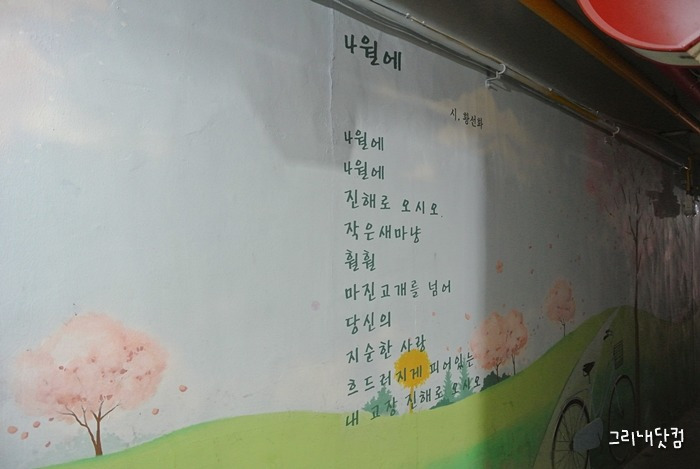 4월에
시. 황선화
4월에
4월에
진해로 오시오.
작은새마냥
훨훨
마진고개를 넘어
당신의
지순한 사랑
흐드러지게 피어있는
내 고장 진해로 오시오
그리내닷컴